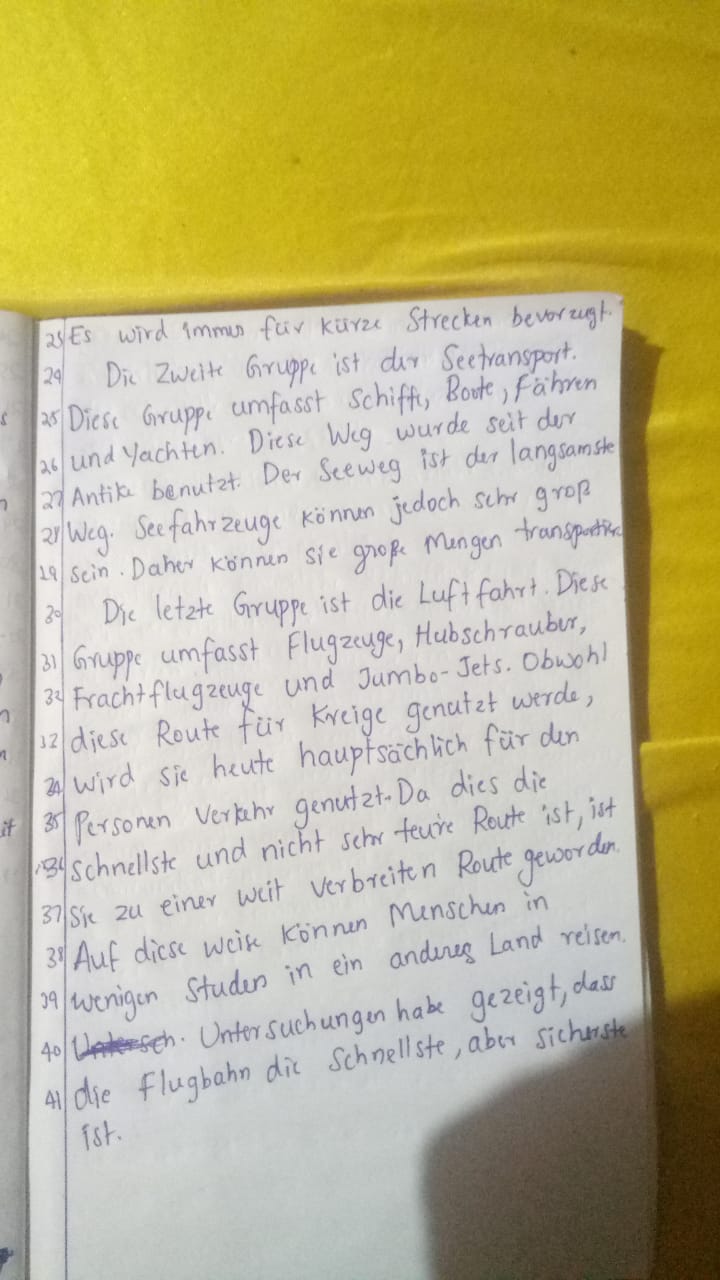 23 Es wird immer für kürze Strecken bevorzugt.
24 Die zweite Gruppe ist der Seetransport.
25 Diese Gruppe umfasst Schiffe, Boote, Fähren
26 und Yachten. Diese Weg wurde seit der
27 Antike benutzt. Der Seeweg ist der langsamste
28 Weg. Seefahrzeuge können jedoch sehr groß
29 sein. Daher können sie große Mengen
30 Die letzte Gruppe ist die Luftfahrt. Diese
31 Gruppe umfasst Flugzeuge, Hubschrauber,
32 Frachtflugzeuge und Jumbo-Jets. Obwohl
32 diese Route für Kreige genutzt werde,
34 wird sie heute hauptsächlich für den
35 Personen Verkehr genutzt. Da dies die
36 schnellste und nicht sehr teure Route ist, ist
37 Sie zu einer weit verbreiten Route geworden.
38 Auf diese weise können Menschen in
39 wenigen Studen in ein anderes Land reisen.
40 Untersuchungen habe gezeigt, dass
41 die Flugbahn die schnellste, aber sicherste
ist.